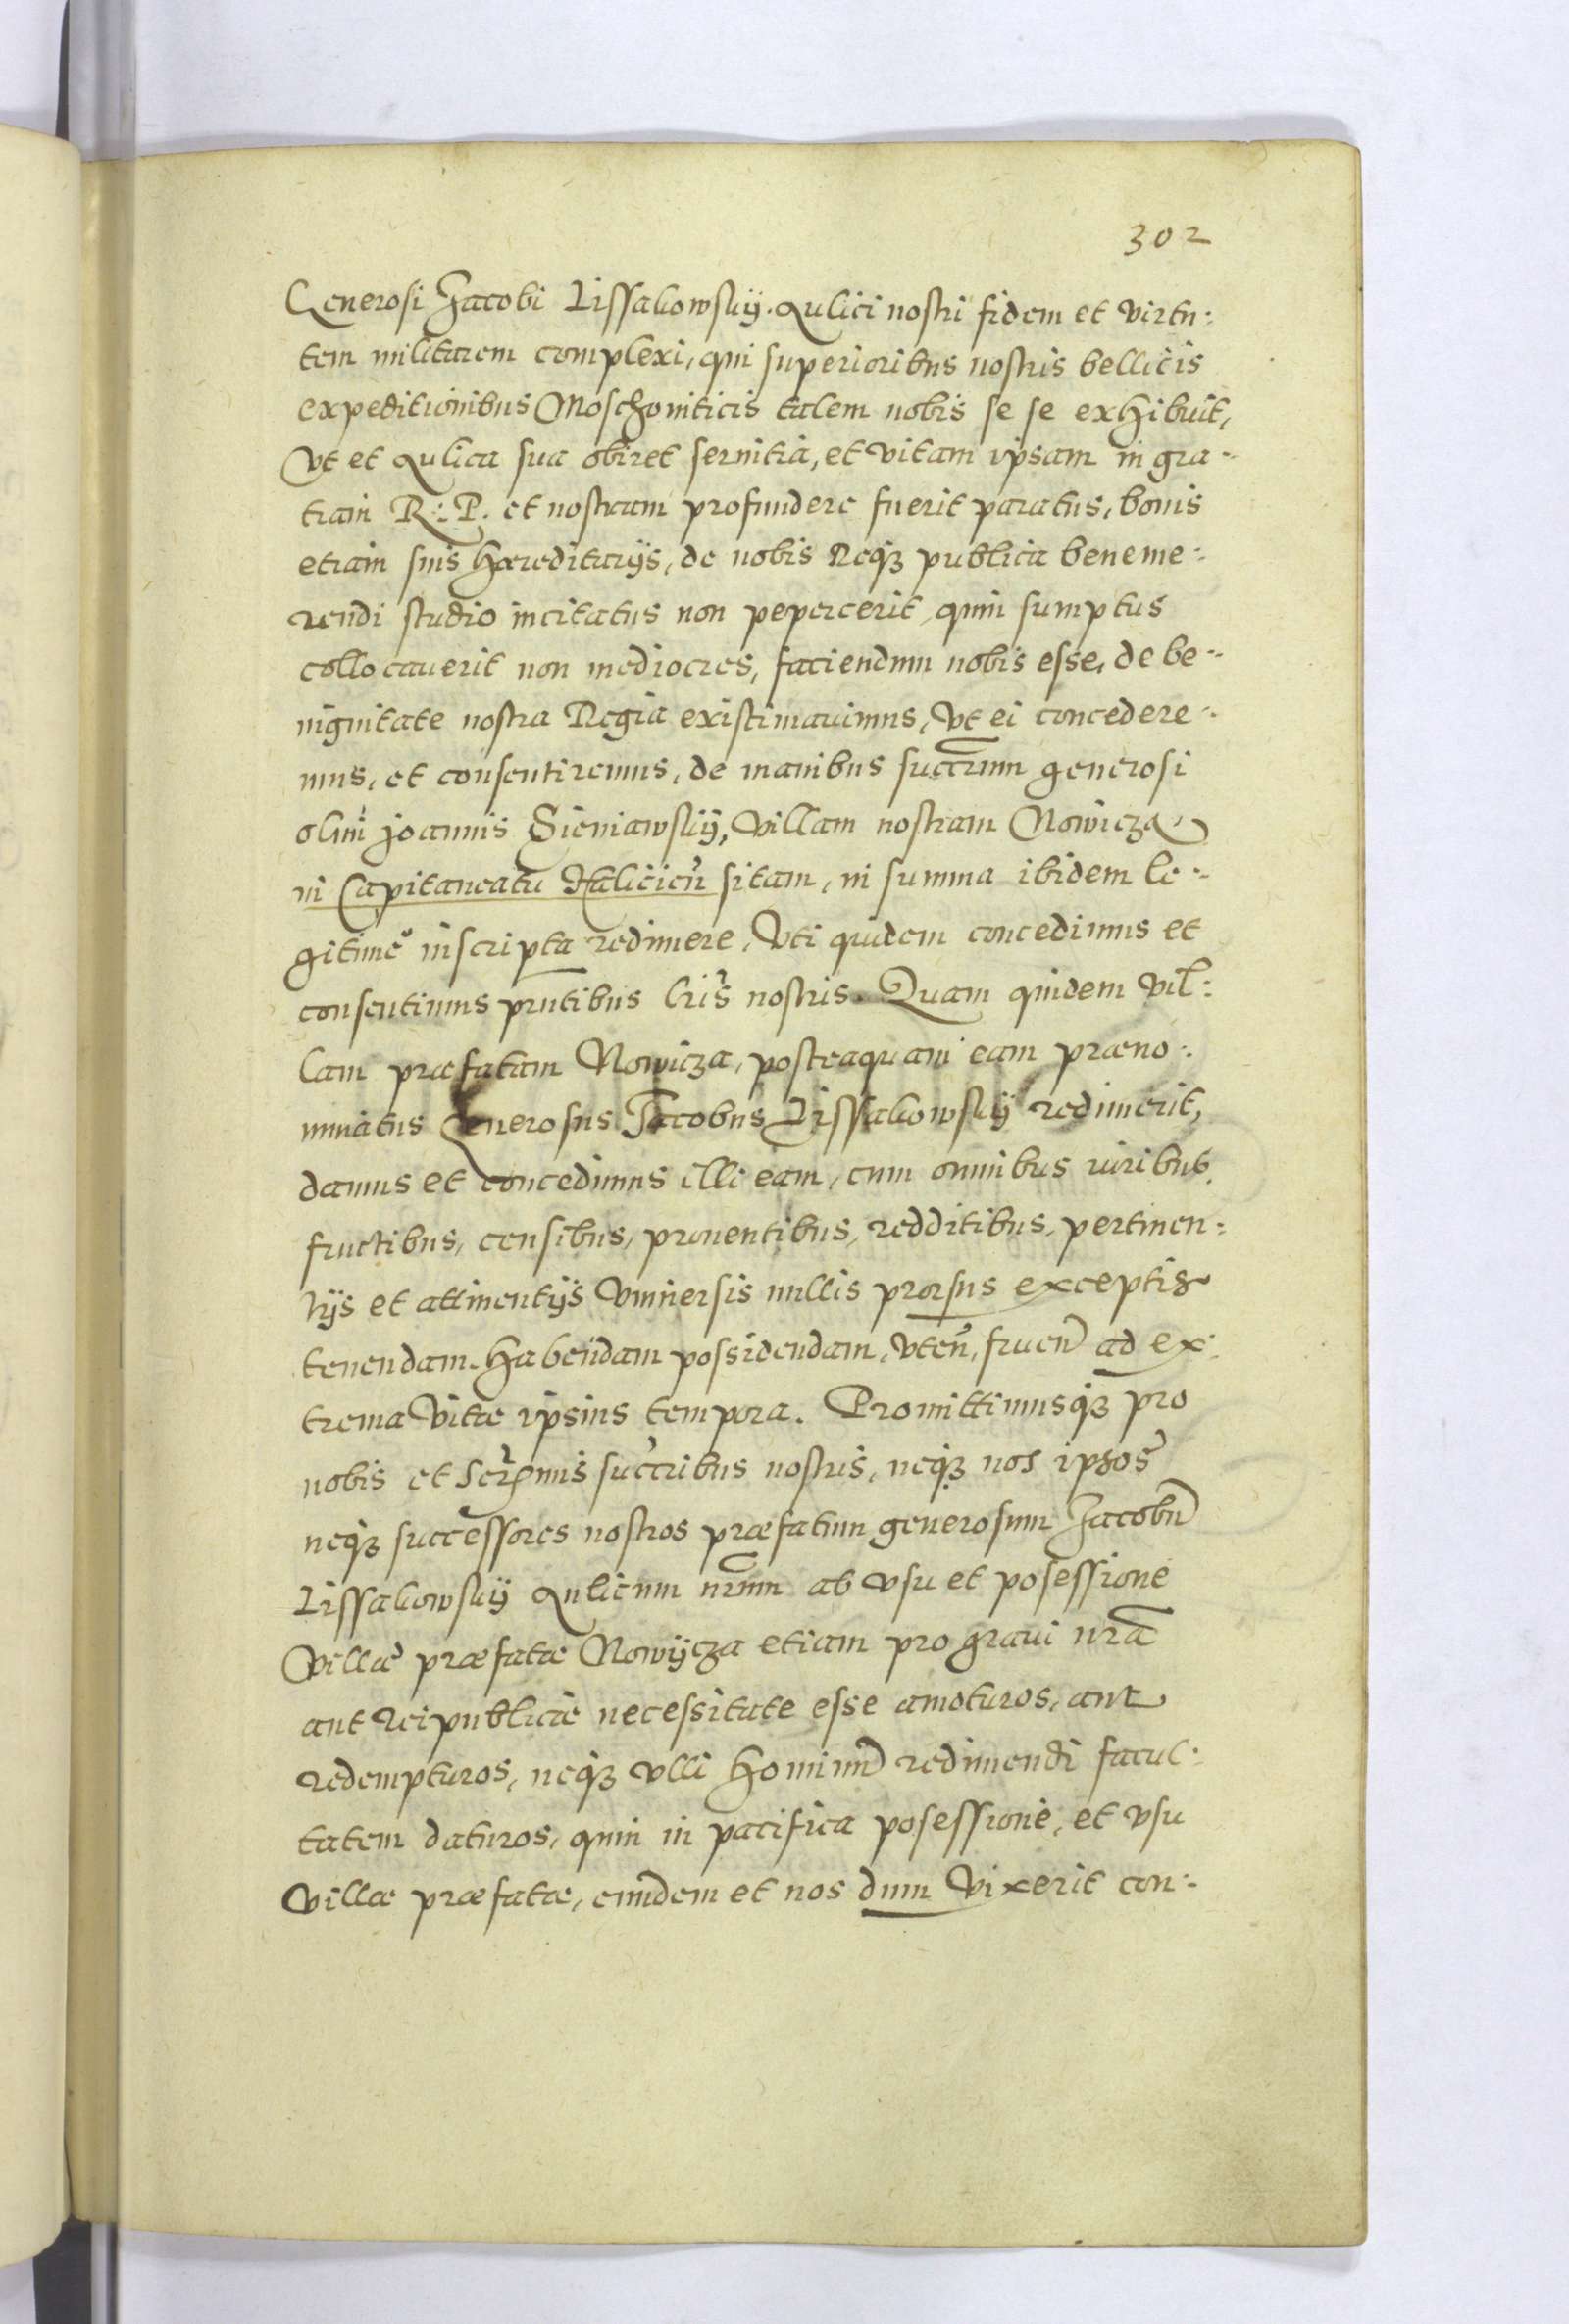 302
Generosi Jacobi Lissakowskij Aulici nostri fidem et virtu:
tem militarem complexi, qui superioribus nostris bellicis
expeditionibus Moschouiticis talem nobis se se exhibuit,
Vt et Aulica sua obiret seruitia, et vitam ipsam in gra:
tiam R: P. et nostram profundere fuerit paratus, bonis
etiam suis hæreditarijs, de nobis Reqꝫ publica beneme:
rendi studio incitatus non pepercerit, quin sumptus
collocauerit non mediocres, faciendum nobis esse, de be:
nignitate nostra Regia existimauimus, Vt ei concedere:
mus, et consentiremus, de manibus succrum generosi
olim Joannis Sieniawskij, Villam nostram Nowicza
in Capitaneatu Halicien̄ sitam, in summa ibidem le:
gitime inscripta redimere, Vti quidem concedimus et
consentimus pn̄tibus lrīs nostris. Quam quidem vil:
lam præfatam Nowicza, posteaquam eam præno:
minatus Generosus Jacobus Lissakowskij redimerit,
damus et concedimus illi eam, cum omnibus iuribus,
fructibus, censibus, prouentibus, redditibus, pertinen:
tijs et attinentijs Vniuersis nullis prorsus exceptis
tenendam, habendam possidendam, vten̄, fruen̄ ad ex:
trema Vitæ ipsius tempora. Promittimusqꝫ pro
nobis et Serꝫmis succribus nostris, neqꝫ nos ipsos
neqꝫ successores nostros præfatum generosum Jacobū
Lissakowskij Aulicum nrūm ab vsu et posessione
Villæ præfatæ Nowijcza etiam pro graui nrā
aut Reipublicæ necessitate esse amoturos, aut
redempturos, neqꝫ vlli hominū redimendi facul:
tatem daturos, quin in pacifica posessione, et vsu
Villæ præfatæ, eundem et nos dum Vixerit con: